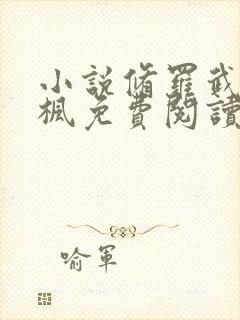 小説脩羅武
楓免費閱讀
喻軍